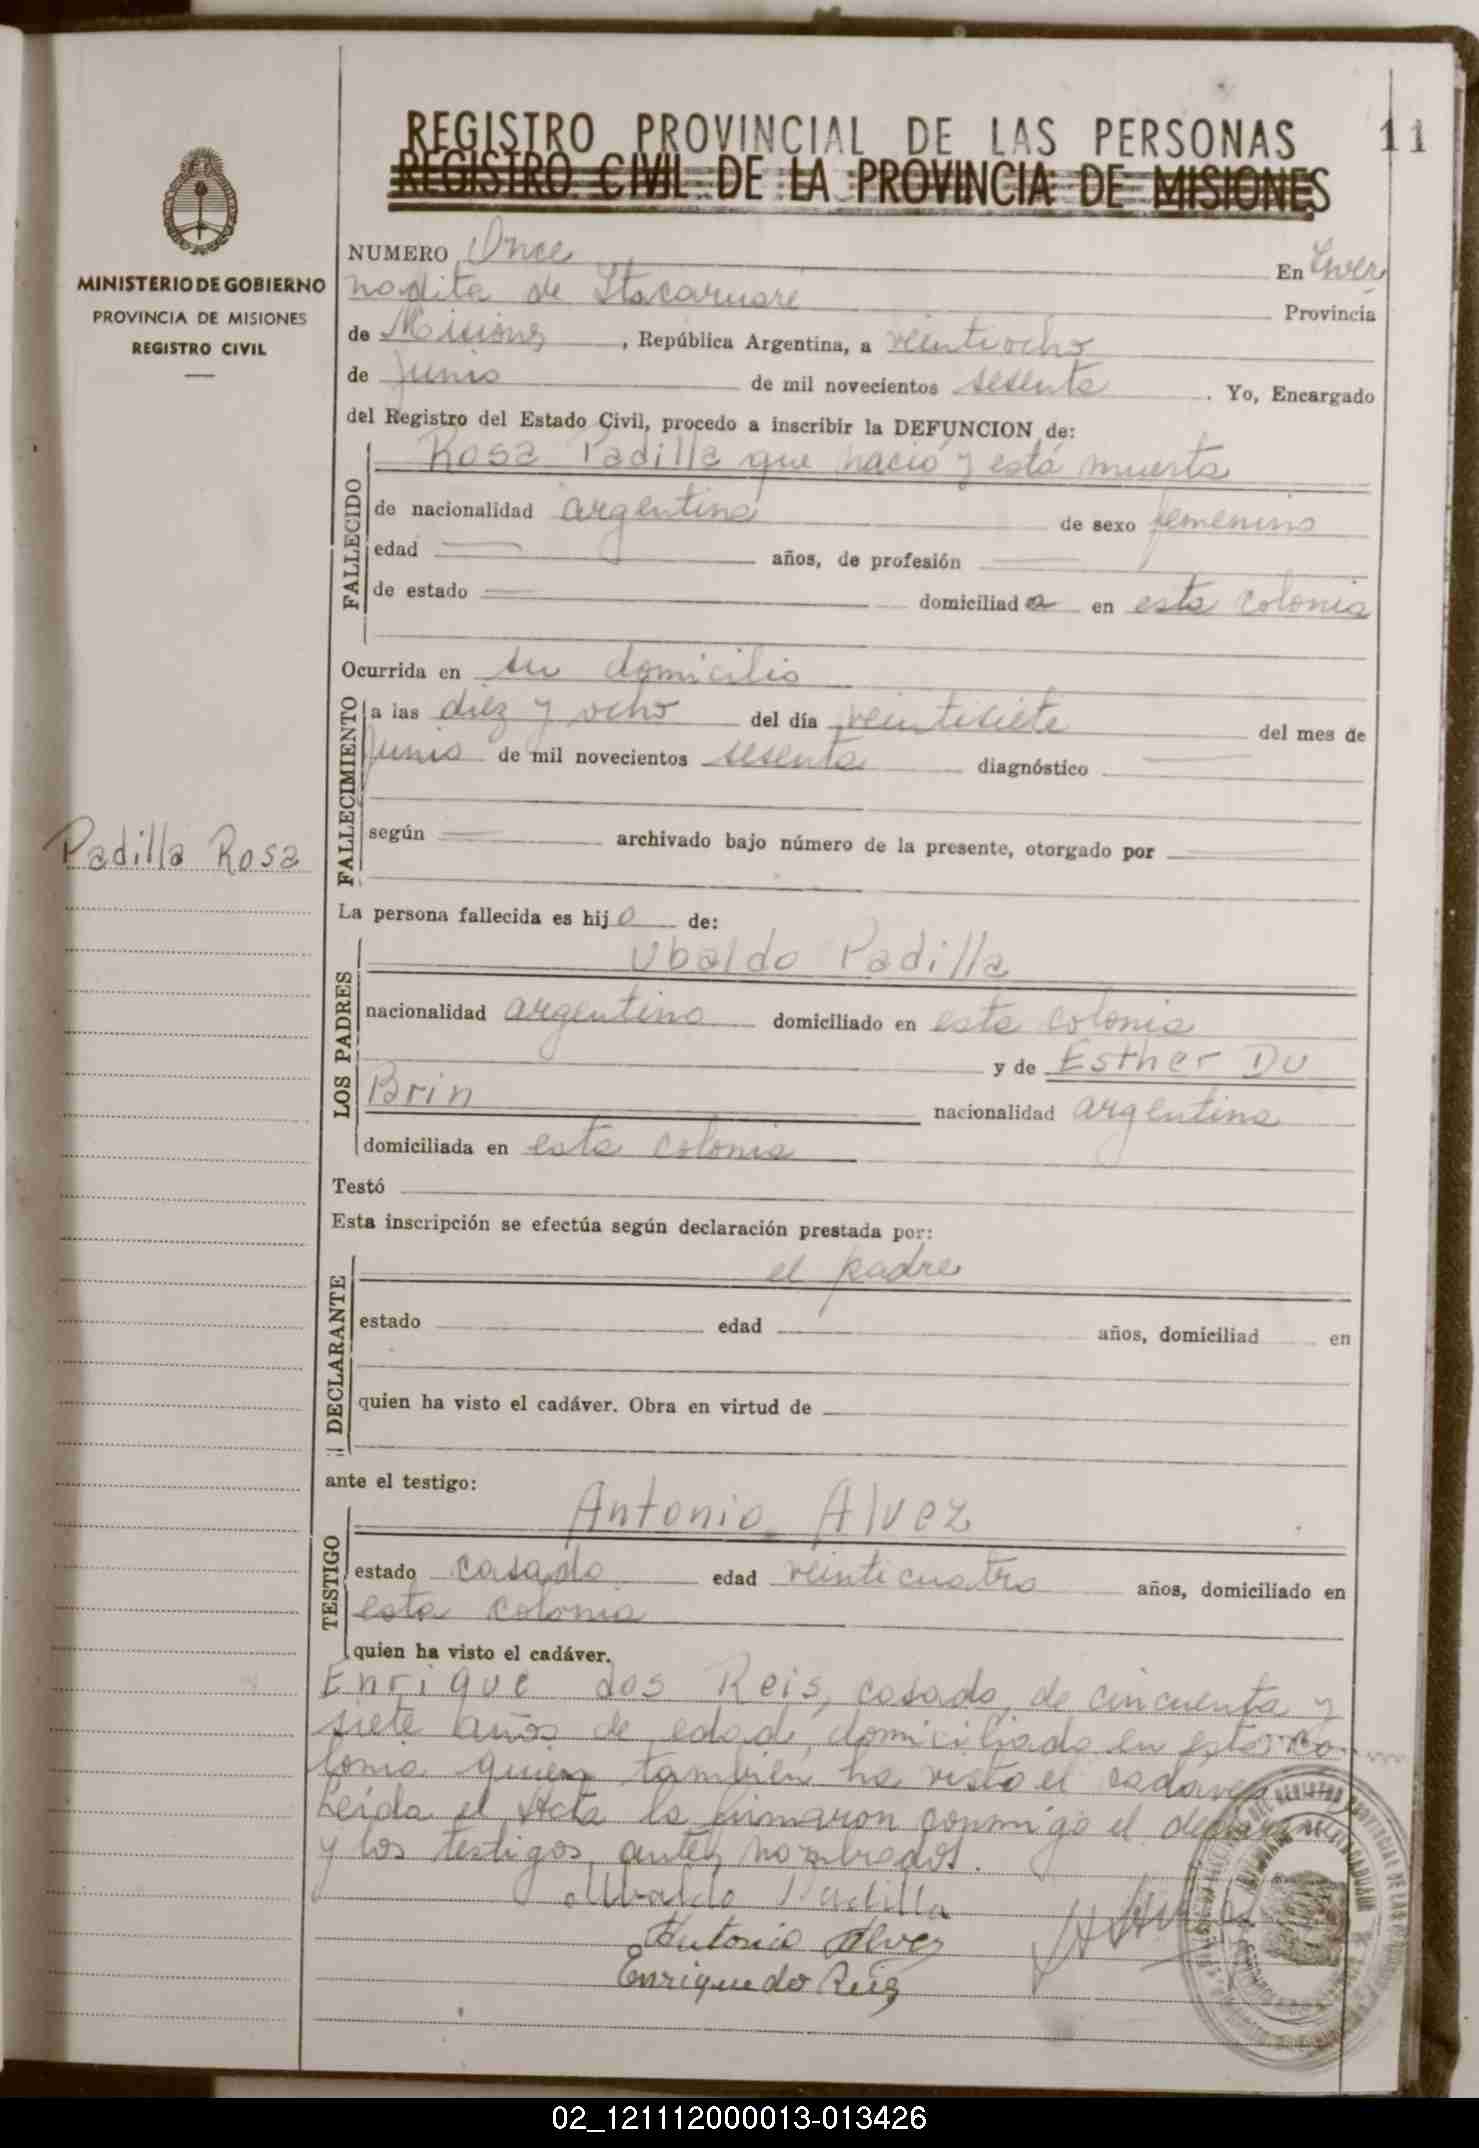 REGISTRO PROVINCIAL DE LAS PERSONAS
11
REGISTRO CIVIL DE LA PROVINCIA DE MISIONES
MINISTERIO DE GOBIERNO
PROVINCIA DE MISIONES
REGISTRO CIVIL
NUMERO Once En Inver
nadita de Itacaruare Provincia
de Misiones, República Argentina, a veintiocho
de junio de mil novecientos sesenta. Yo, Encargado
del Registro del Estado Civil, procedo a inscribir la DEFUNCION de:
FALLECIDO
Rosa Padilla que nació y está muerta
de nacionalidad argentina de sexo femenino
edad años, de profesión
de estado domiciliada en esta colonia
Ocurrida en su domicilio
FALLECIMIENTO
a las diez y ocho del día veintisiete del mes de
junio de mil novecientos sesenta diagnóstico
según archivado bajo número de la presente, otorgado por
Padilla Rosa
La persona fallecida es hijo de:
LOS PADRES
Ubaldo Padilla
nacionalidad argentino domiciliado en esta colonia
y de Esther Du
Brin nacionalidad argentina
domiciliada en esta colonia
Testó
Esta inscripción se efectúa según declaración prestada por:
DECLARANTE
el padre
estado edad años, domiciliad en
quien ha visto el cadáver. Obra en virtud de
ante el testigo:
TESTIGO
Antonio Alvez
estado casado edad veinticuatro años, domiciliado en
esta colonia
quien ha visto el cadáver.
Enrique dos Reis, casado, de cincuenta y
siete años de edad, domiciliado en esta co
lonia quien también ha visto el cadáver
Leída el Acta la firmaron conmigo el declarante
y los testigos antes nombrados.
Ubaldo Padilla
Antonio Alvez
Enrique do Reis
02_121112000013-013426